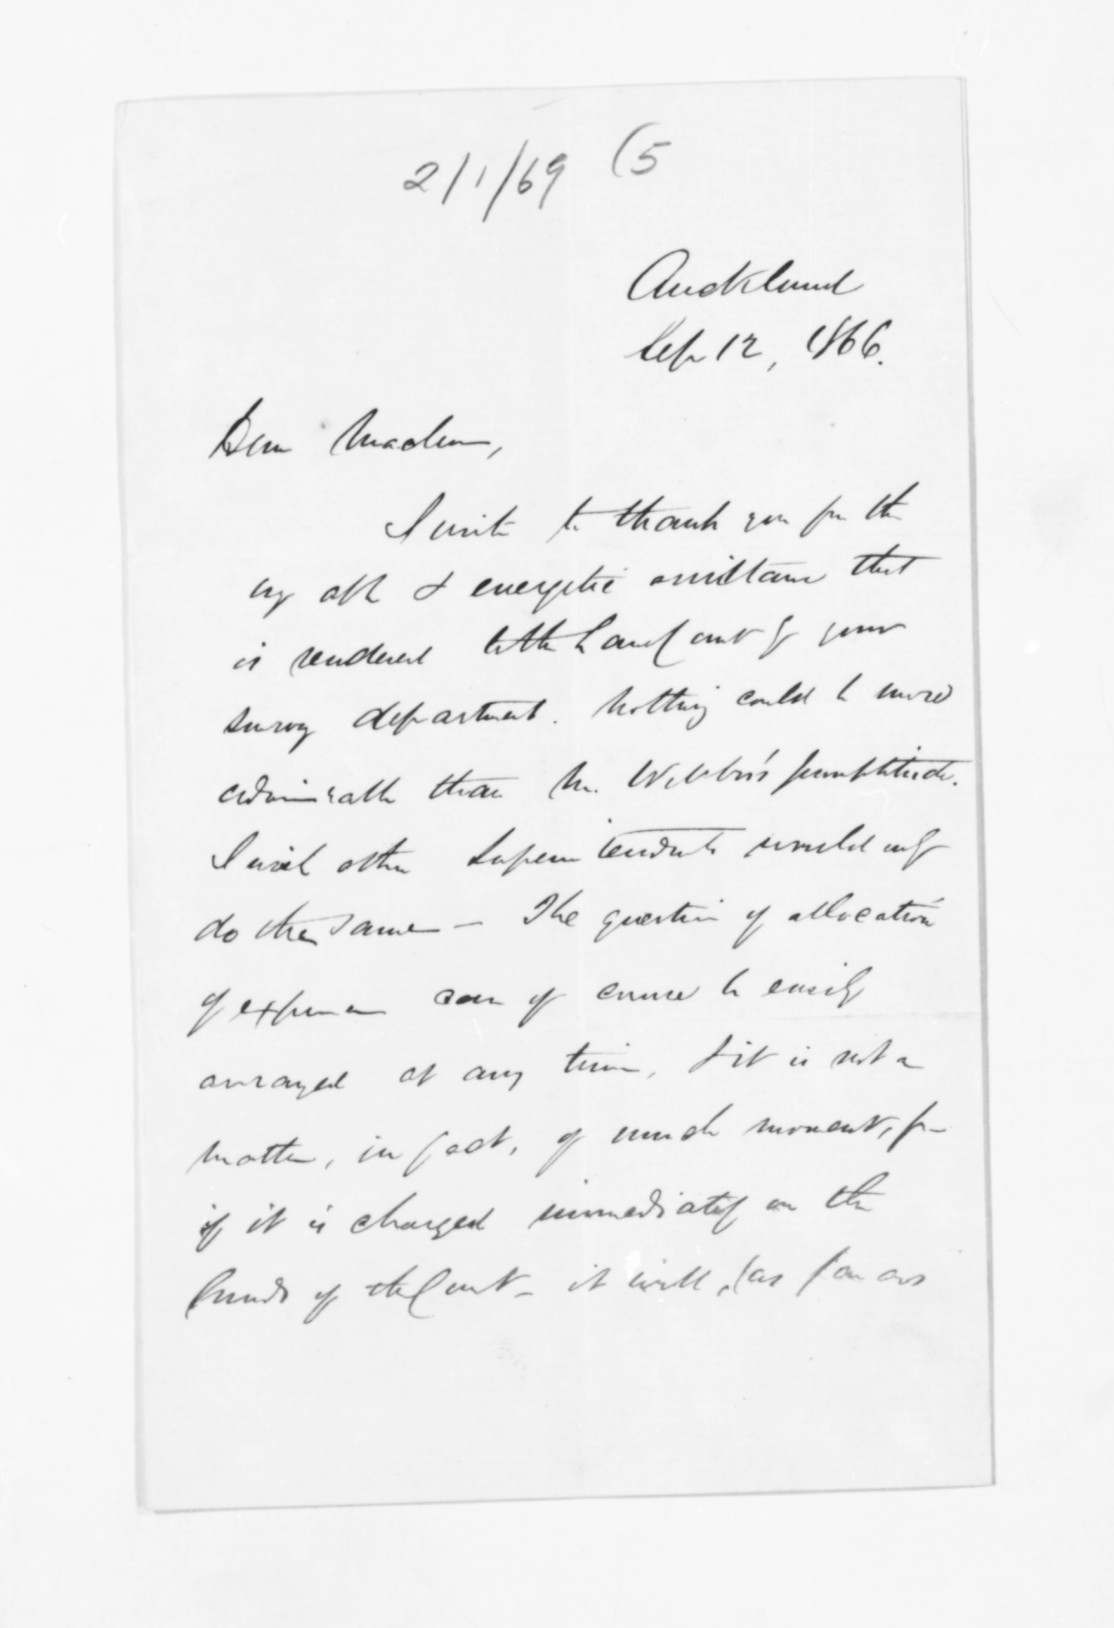 2/1/69 (5
Auckland
Sep 12, 1866.
Dear Maclean,
I write to thank you for the
very able & energetic assistance that
is rendered to the Land Court by your
survey department. Nothing could be more
admirable than Mr. Webber's promptitude.
I wish other Superintendents would only
do the same — The question of allocation
of expense can of course be easily
arranged at any time, & it is not a
matter, in fact, of much moment, for
if it is charged immediately on the
funds of the Court – it will, (as far as